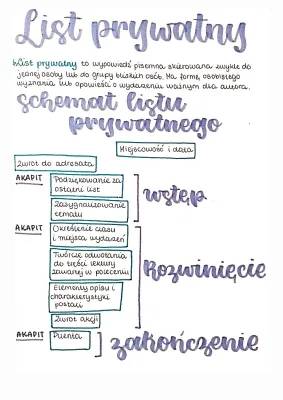 List prywatny
List prywatny to wypowiedź pisemna skierowana zwykle do
jednej osoby lub do grupy bliskich osób. Ma formę osobistego
wyznania lub opowieści o wydarzeniu ważnym dla autora.
schemat listu
prywatnego
Miejscowość i data
Zwrot do adresata
AKAPIT
Podziękowanie za
ostatni list
Zasygnalizowanie
tematu
wstęp
AKAPIT
Określenie czasu
i miejsca wydarzeń
Twórcze odwołania
do treści lektury
zawartej w poleceniu
Elementy opisu i
charakterystyki
postaci
Zwrot akcji
Rozwinięcie
AKAPIT
Puenta
zakończenie